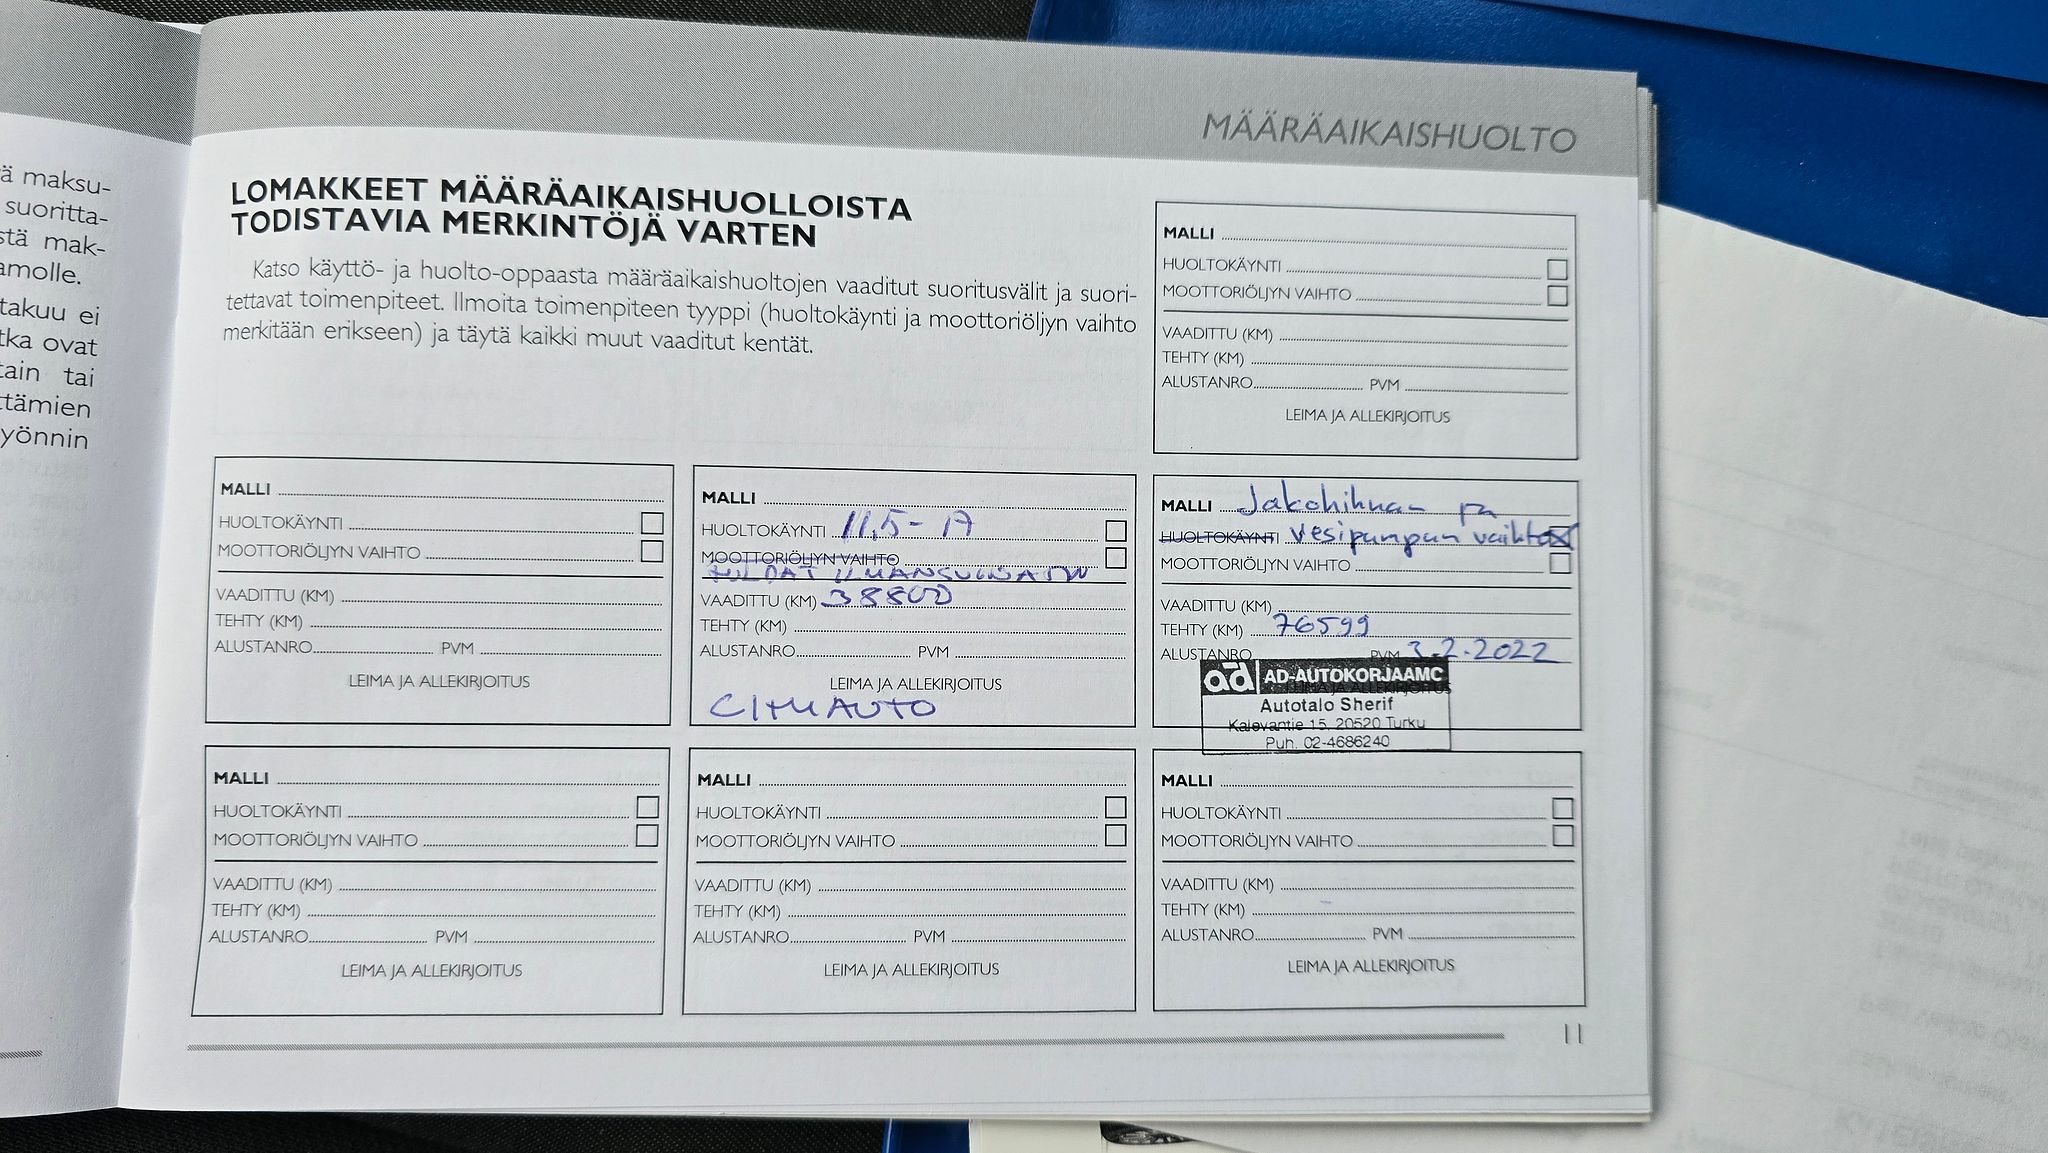 ä maksu-
suoritta-
stä mak-
amolle.
takuu ei
tka ovat
tain tai
ttämien
yönnin
MÄÄRÄAIKAISHUOLTO
LOMAKKEET MÄÄRÄAIKAISHUOLLOISTA
TODISTAVIA MERKINTÖJÄ VARTEN
Katso käyttö- ja huolto-oppaasta määräaikaishuoltojen vaaditut suoritusvälit ja suori-
tettavat toimenpiteet. Ilmoita toimenpiteen tyyppi (huoltokäynti ja moottoriöljyn vaihto
merkitään erikseen) ja täytä kaikki muut vaaditut kentät.
MALLI
HUOLTOKÄYNTI
MOOTTORIÖLJYN VAIHTO
VAADITTU (KM)
TEHTY (KM)
ALUSTANRO PVM
LEIMA JA ALLEKIRJOITUS
MALLI
HUOLTOKÄYNTI
MOOTTORIÖLJYN VAIHTO
VAADITTU (KM)
TEHTY (KM)
ALUSTANRO PVM
LEIMA JA ALLEKIRJOITUS
MALLI
HUOLTOKÄYNTI 11,5-17
MOOTTORIÖLJYN VAIHTO
VAADITTU (KM) 38800
TEHTY (KM)
ALUSTANRO PVM
LEIMA JA ALLEKIRJOITUS
MALLI Jakohihnan ja
HUOLTOKÄYNTI vesipumpun vaihto
MOOTTORIÖLJYN VAIHTO
VAADITTU (KM)
TEHTY (KM) 76599
ALUSTANRO PVM 3.2.2022
ad AD-AUTOKORJAAMC
Autotalo Sherif
Kalevantie 15, 20520 Turku
Puh. 02-4686240
MALLI
HUOLTOKÄYNTI
MOOTTORIÖLJYN VAIHTO
VAADITTU (KM)
TEHTY (KM)
ALUSTANRO PVM
LEIMA JA ALLEKIRJOITUS
MALLI
HUOLTOKÄYNTI
MOOTTORIÖLJYN VAIHTO
VAADITTU (KM)
TEHTY (KM)
ALUSTANRO PVM
LEIMA JA ALLEKIRJOITUS
MALLI
HUOLTOKÄYNTI
MOOTTORIÖLJYN VAIHTO
VAADITTU (KM)
TEHTY (KM)
ALUSTANRO PVM
LEIMA JA ALLEKIRJOITUS
11